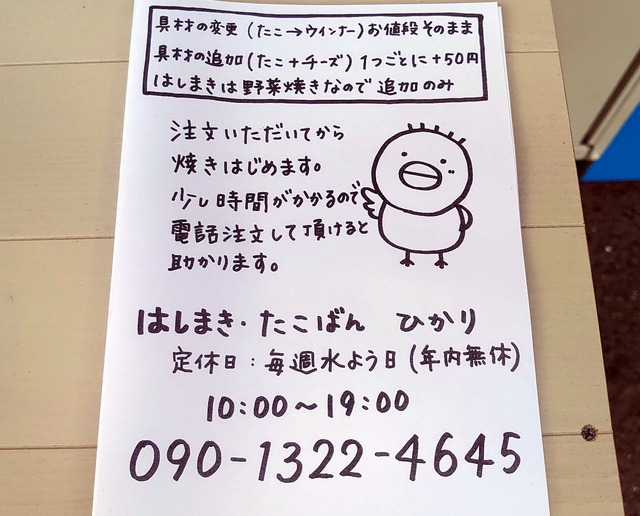 具材の変更(たこ→ウインナー)お値段そのまま
具材の追加(たこ+チーズ)1つごとに+50円
はしまきは野菜焼きなので追加のみ
注文いただいてから
焼きはじめます。
少し時間がかかるので
電話注文して頂けると
助かります。
はしまき・たこばん ひかり
定休日:毎週水よう日(年内無休)
10:00〜19:00
090-1322-4645